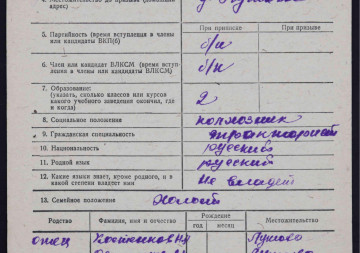 4. Местожительство до призыва (полный
адрес)
При приписке
При призыве
5. Партийность (время вступления в члены
или кандидаты ВКП(б)
б/п
6. Член или кандидат ВЛКСМ (время вступ-
ления в члены или кандидаты ВЛКСМ)
б/п
7. Образование:
(указать, сколько классов или курсов
какого учебного заведения окончил, где
и когда)
2
8. Социальное положение
колхозник
9. Гражданская специальность
10. Национальность
русский
11. Родной язык
русский
12. Какие языки знает, кроме родного, и в
какой степени владеет ими
Не владеет
13. Семейное положение
Холост
Родство
Фамилия, имя и отчество
Рождение
год
месяц
Местожительство
отец